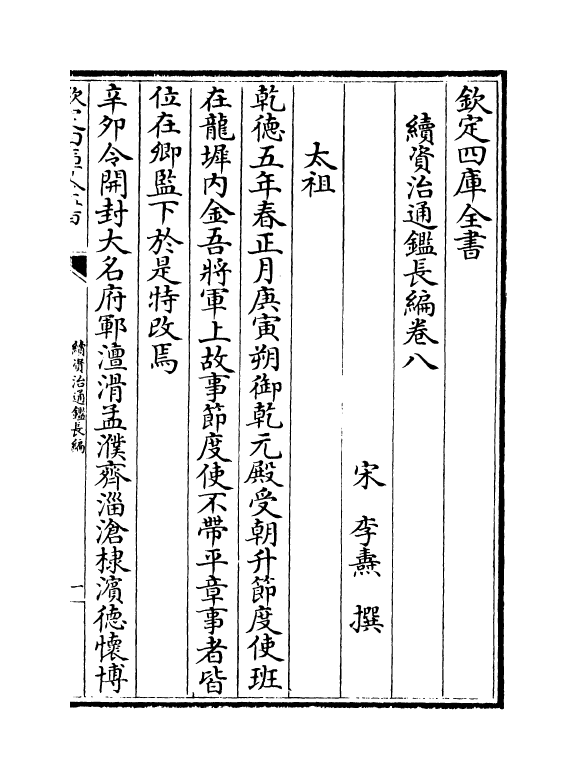 欽定四庫全書
續資治通鑑長編卷八
宋 李燾 撰
太祖
乾德五年春正月庚寅朔御乾元殿受朝升節度使班
在龍墀内金吾將軍上故事節度使不帶平章事者皆
位在卿監下於是特改焉
辛夘令開封大名府鄆澶滑孟濮齊淄滄棣濱德懷博
續資治通鑑長編
一